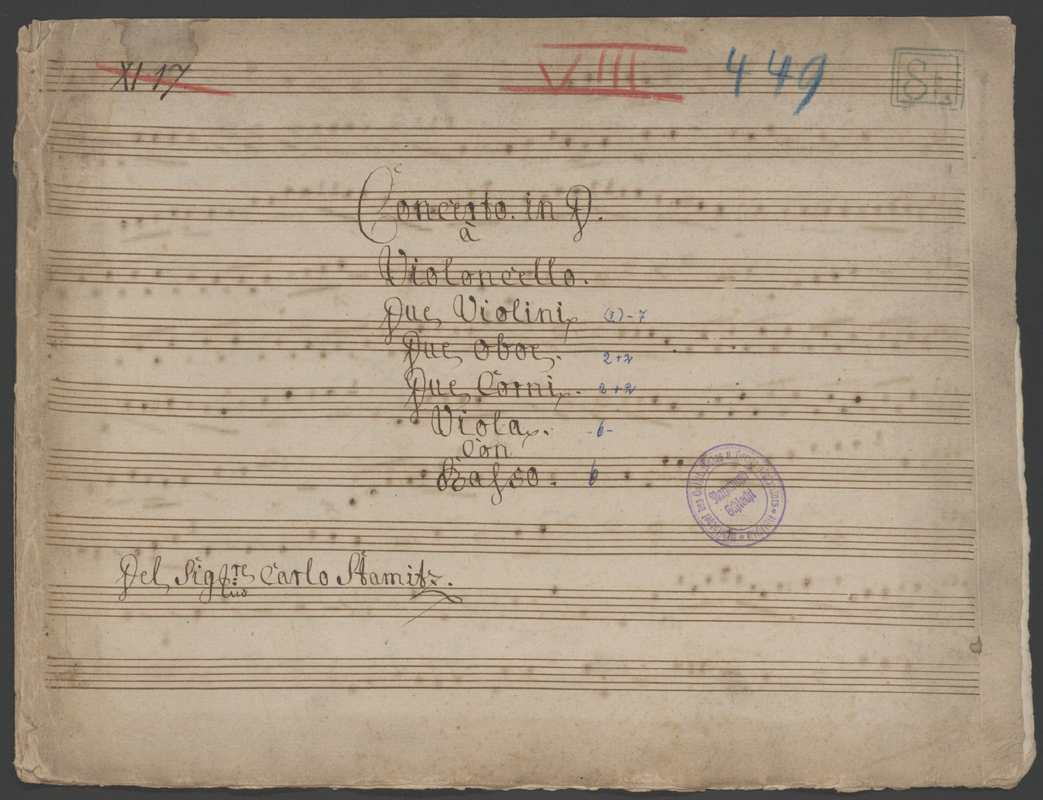 XI 17
VIII
449
St.
Concerto. in D.
à
Violoncello.
Due Violini
(1)-7
Due Oboe.
2+2
Due Corni.
2+2
Viola.
-6-
Con
Basso.
6
Del Sigre Carlo Stamitz.